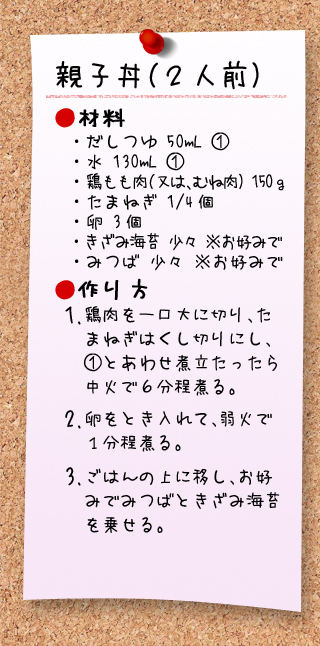 親子丼(２人前)
●材料
・だしつゆ 50mL ①
・水 130mL ①
・鶏もも肉(又は、むね肉) 150g
・たまねぎ 1/4個
・卵 3個
・きざみ海苔 少々 ※お好みで
・みつば 少々 ※お好みで
●作り方
1. 鶏肉を一口大に切り、た
まねぎはくし切りにし、
①とあわせ煮立たったら
中火で６分程煮る。
2. 卵をとき入れて、弱火で
１分程煮る。
3. ごはんの上に移し、お好
みでみつばときざみ海苔
を乗せる。